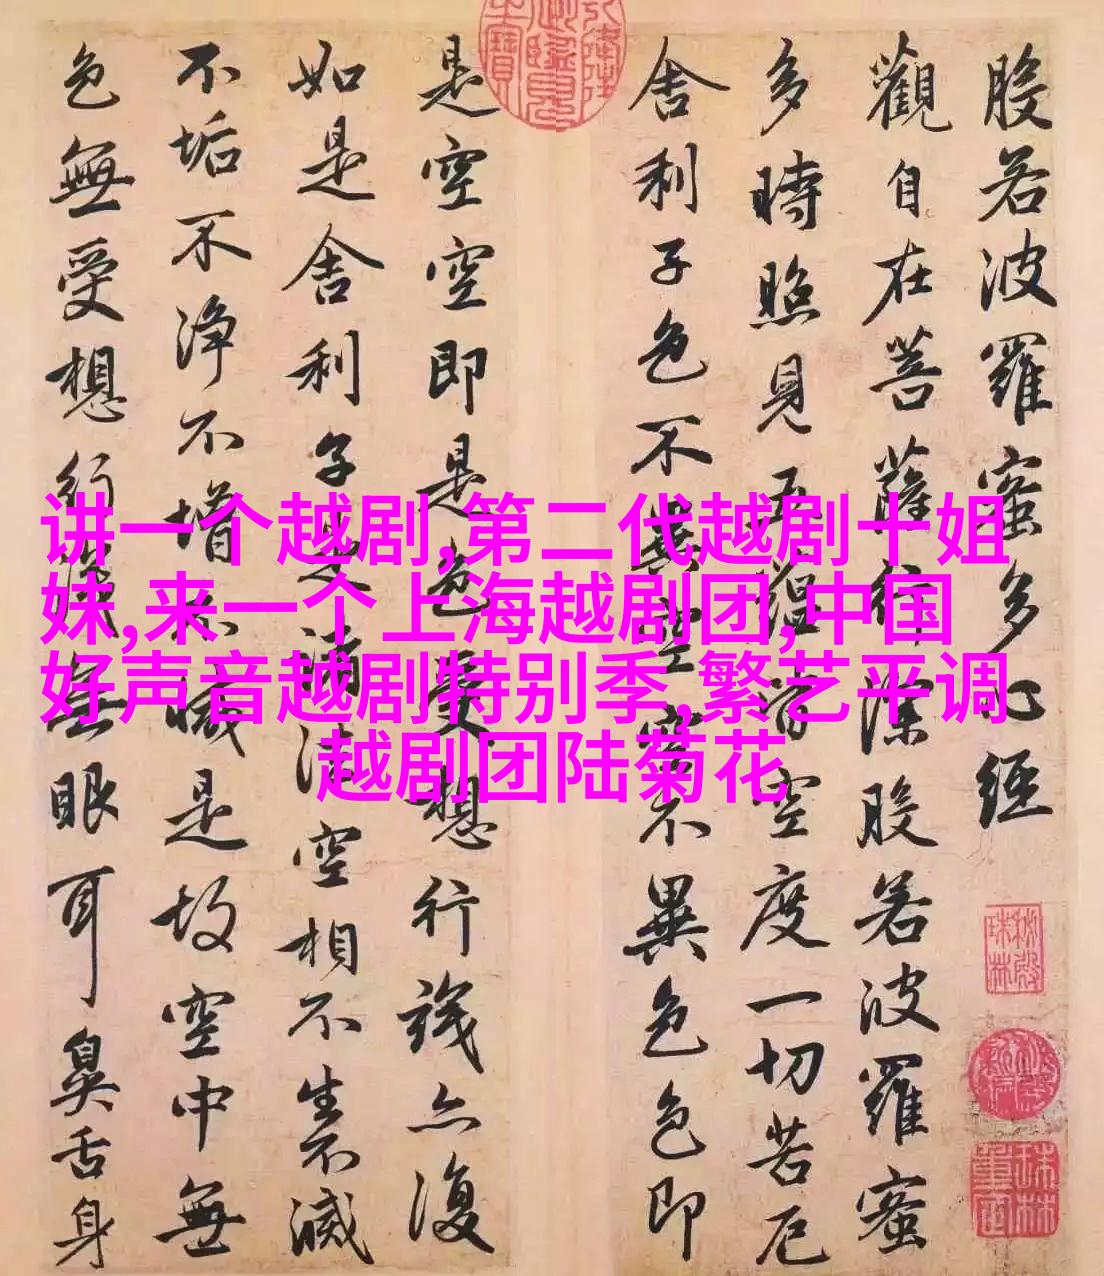 讲一个越剧,第二代越剧十姐
妹,来一个上海越剧团,中国
好声音越剧特别季,繁艺平调
越剧团陆菊花
般若波羅蜜多心經
觀自在菩薩行深般若波羅蜜
多時照見五蘊皆空度一切苦厄
舍利子色不異空空不異色色即
是空空即是色受想行識亦復
如是舍利子是諸法空相不生不滅
不垢不净不增不減是故空中無
色無受想行識無眼耳鼻舌身